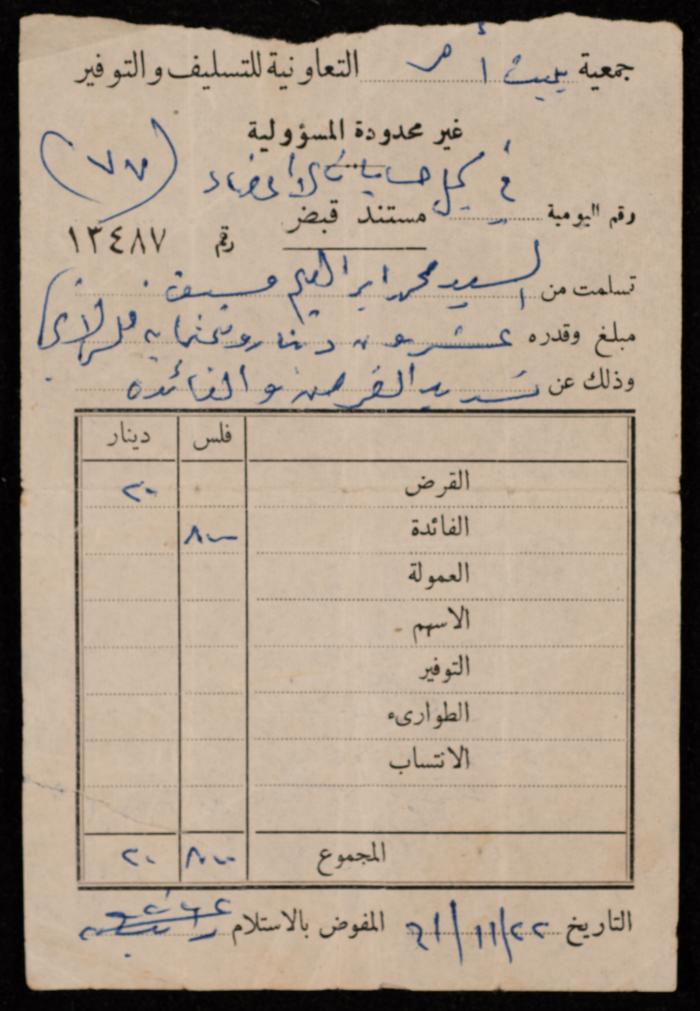 جمعية بيت أمر التعاونية للتسليف والتوفير
غير محدودة المسؤولية
(٧٧)
في سجل حسابات الأعضاء
رقم اليومية مستند قبض رقم ١٣٤٨٧
تسلمت من السيد محمد ابراهيم
مبلغ وقدره عشرون دينار وثمنمايه فلس لاغير
وذلك عن تسديد القرض والفائده
فلس دينار
القرض ٢٠
الفائدة ٨٠٠
العمولة
الاسهم
التوفير
الطوارىء
الانتساب
المجموع ٨٠٠ ٢٠
التاريخ ٢٢/١١/٦١ المفوض بالاستلام